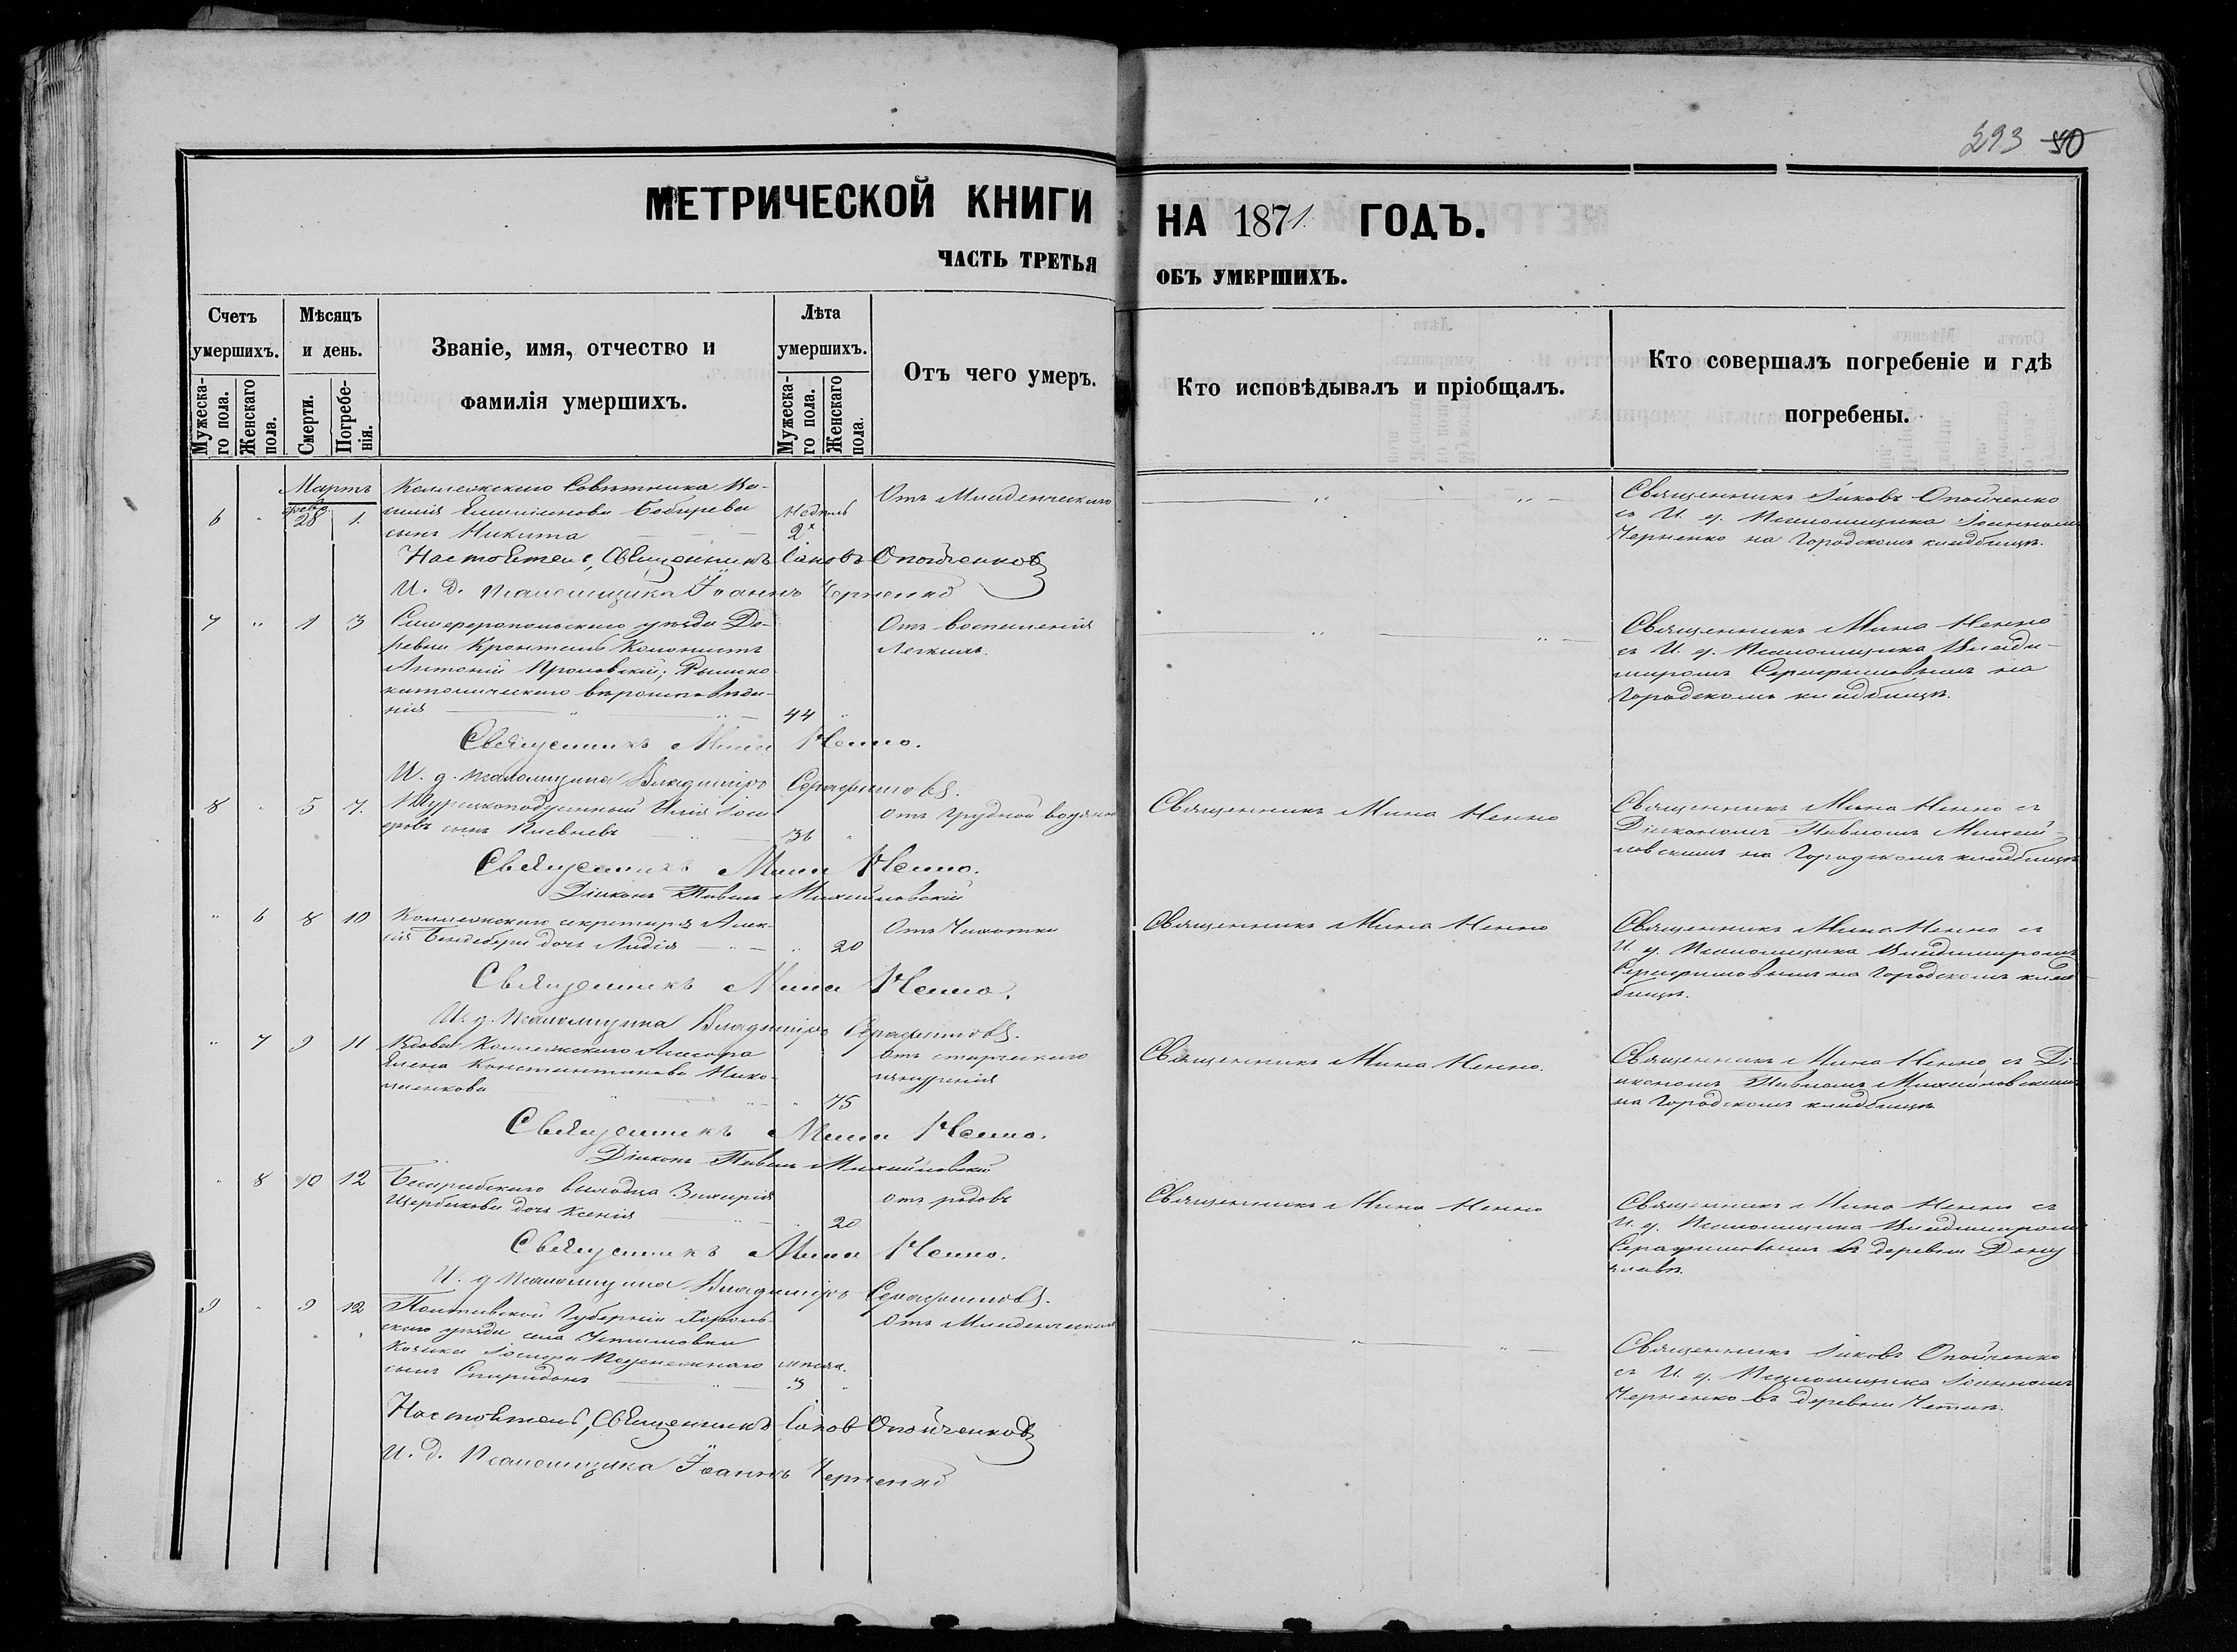 293 50
МЕТРИЧЕСКОЙ КНИГИ НА 1871 ГОДЪ.
ЧАСТЬ ТРЕТЬЯ ОБЪ УМЕРШИХЪ.
Счетъ умершихъ.
Мужеска-го пола.
Женскаго пола.
Мѣсяцъ и день.
Смерти.
Погребе-нія.
Званіе, имя, отчество и фамилія умершихъ.
Лѣта умершихъ.
Мужеска-го пола.
Женскаго пола.
Отъ чего умеръ.
Кто исповѣдывалъ и пріобщалъ.
Кто совершалъ погребеніе и гдѣ погребены.
Мартъ
6 " 28 1.
Коллежскаго Совѣтника Ва-
сынъ Никита
недѣль 2
Отъ Младенческаго
Священникъ Іаковъ Опойченко
съ И. д. Псаломщика Іоанномъ
Черненко на Городскомъ кладбищѣ.
Настоятель, Священникъ Іаковъ Опойченковъ
И. д. Псаломщика Іоаннъ Черненко
7 " 1 3
Симферопольскаго уѣзда Де-
ревни Кронталь Колонистъ
Антоній Римско
католическаго вѣроисповѣда-
нія 44 "
Отъ воспаленія
легкихъ.
Священникъ Мина Ненно
съ И. д. Псаломщика Влади-
міромъ Серафимовымъ на
Городскомъ кладбищѣ.
Священникъ Мина Ненно.
И. д. Псаломщика Владиміръ Серафимовъ.
8 " 5 7.
Илія Іоси
фовъ сынъ Плевневъ 36 "
Отъ Грудной водяной
Священникъ Мина Ненно
Священникъ Мина Ненно съ
Діакономъ Павломъ Михай-
ловскимъ на Городскомъ кладбищѣ
Священникъ Мина Ненно.
Діаконъ Павелъ Михайловскій
" 6 8 10
Коллежскаго секретаря Алек-
сія дочь Лидія " 20
Отъ Чахотки
Священникъ Мина Ненно
Священникъ Мина Ненно съ
И. д. Псаломщика Владиміромъ
Серафимовымъ на Городскомъ клад-
бищѣ.
Священникъ Мина Ненно.
И. д. Псаломщика Владиміръ Серафимовъ.
" 7 9 11
Вдова Коллежскаго Асесора
Елена Константинова Нико-
" 75
отъ старческаго
изнуренія
Священникъ Мина Ненно.
Священникъ Мина Ненно съ Ді
акономъ Павломъ Михайловскимъ
на Городскомъ кладбищѣ
Священникъ Мина Ненно.
Діаконъ Павелъ Михайловскій
" 8 10 12
выходца Захарія
Щербакова дочь Ксенія " 20
отъ родовъ
Священникъ Мина Ненно
Священникъ Мина Ненно съ
И. д. Псаломщика Владиміромъ
Серафимовымъ въ деревни Дону
злавъ.
Священникъ Мина Ненно.
И. д. Псаломщика Владиміръ Серафимовъ.
9 " 9 12
Полтавской Губерніи Хороль-
скаго уѣзда села
Козака Іосифа
сынъ Спиридонъ
мѣсяц. 3 "
Отъ Младенческой
Священникъ Іаковъ Опойченко
съ И. д. Псаломщика Іоанномъ
Черненко въ деревни
Настоятель, Священникъ Іаковъ Опойченковъ
И. д. Псаломщика Іоаннъ Черненко